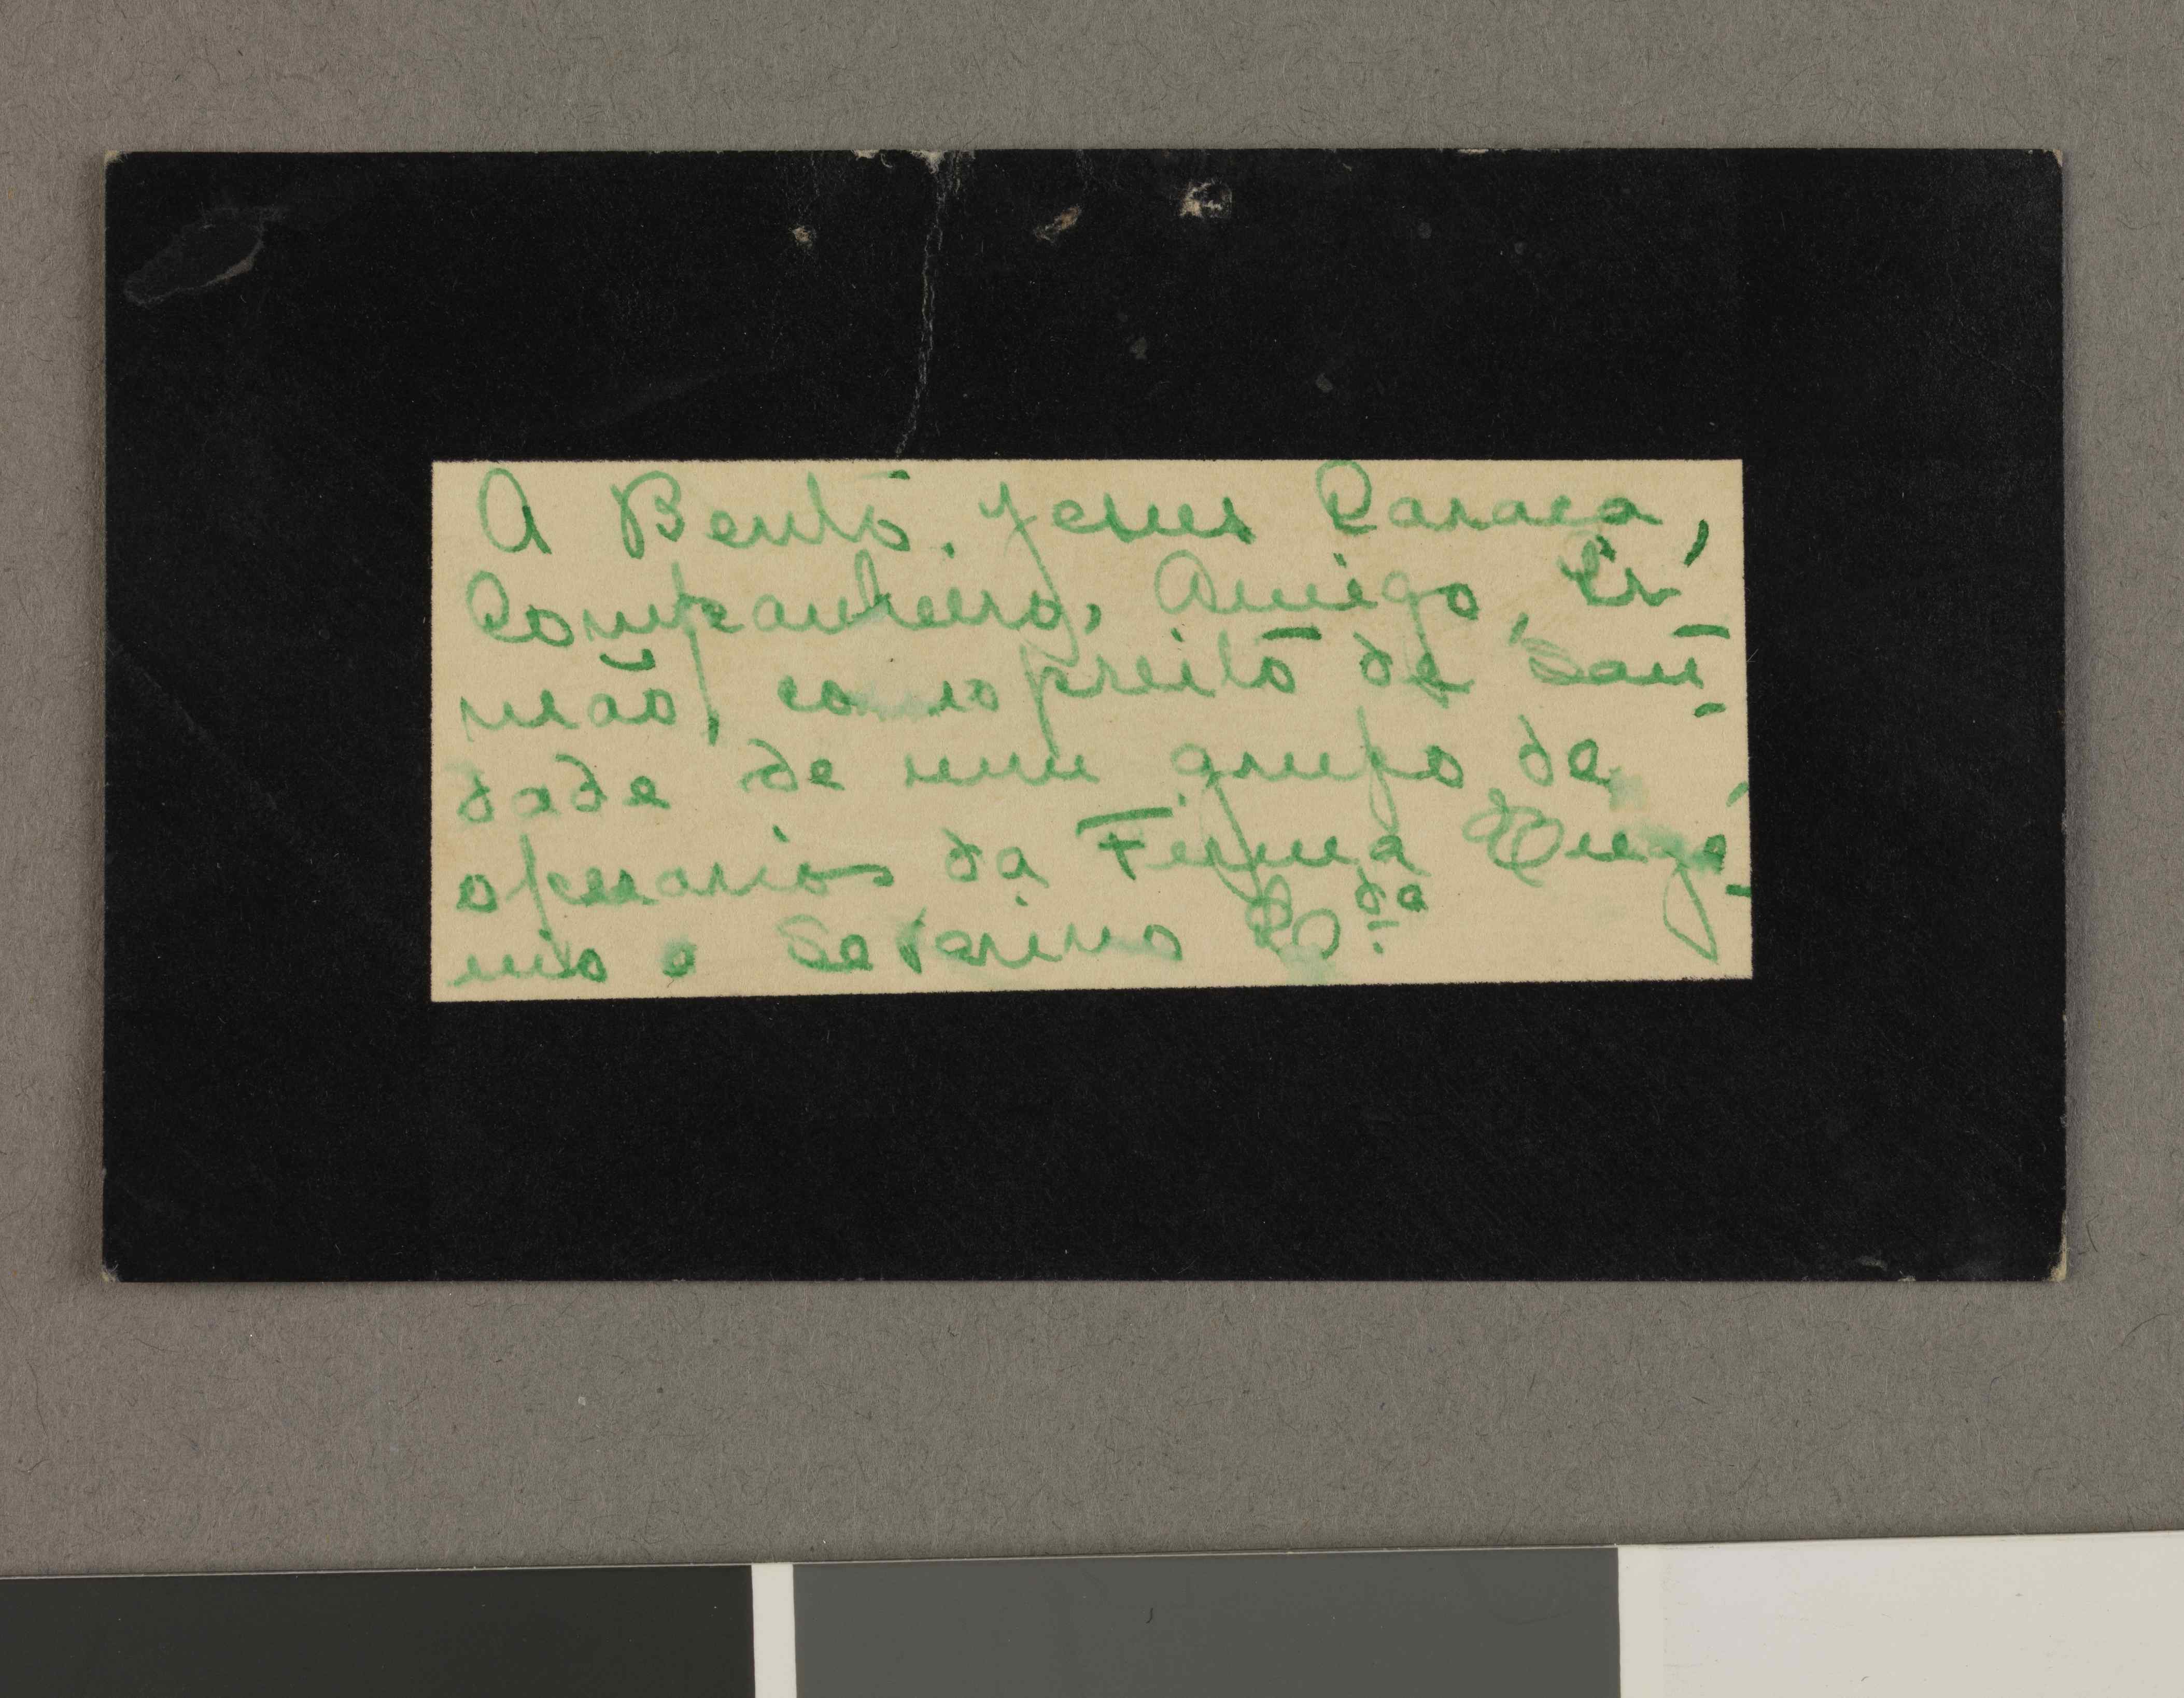 A Bento Jesus Caraça,
Companheiro, Amigo, Ir-
mão, como preito de Sau-
dade de um grupo de
operarios da Firma Eugé-
nio e Severino L.da